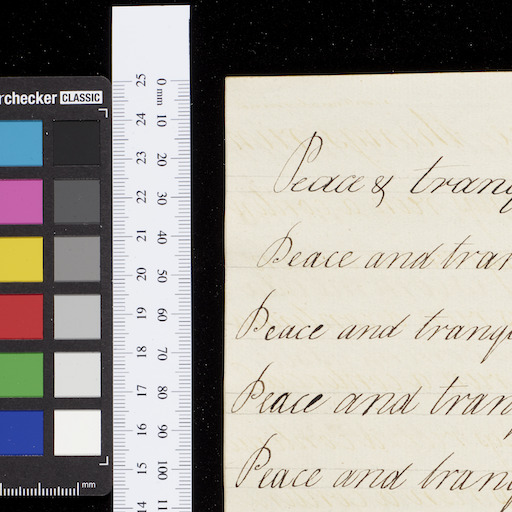 rchecker CLASSIC
mm
25 24 23 22 21 20 19 18 17 16 15 14
0 mm 10 20 30 40 50 60 70 80 90 100 11
Peace & tranq
Peace and tran
Peace and tranqu
Peace and tranq
Peace and tranq